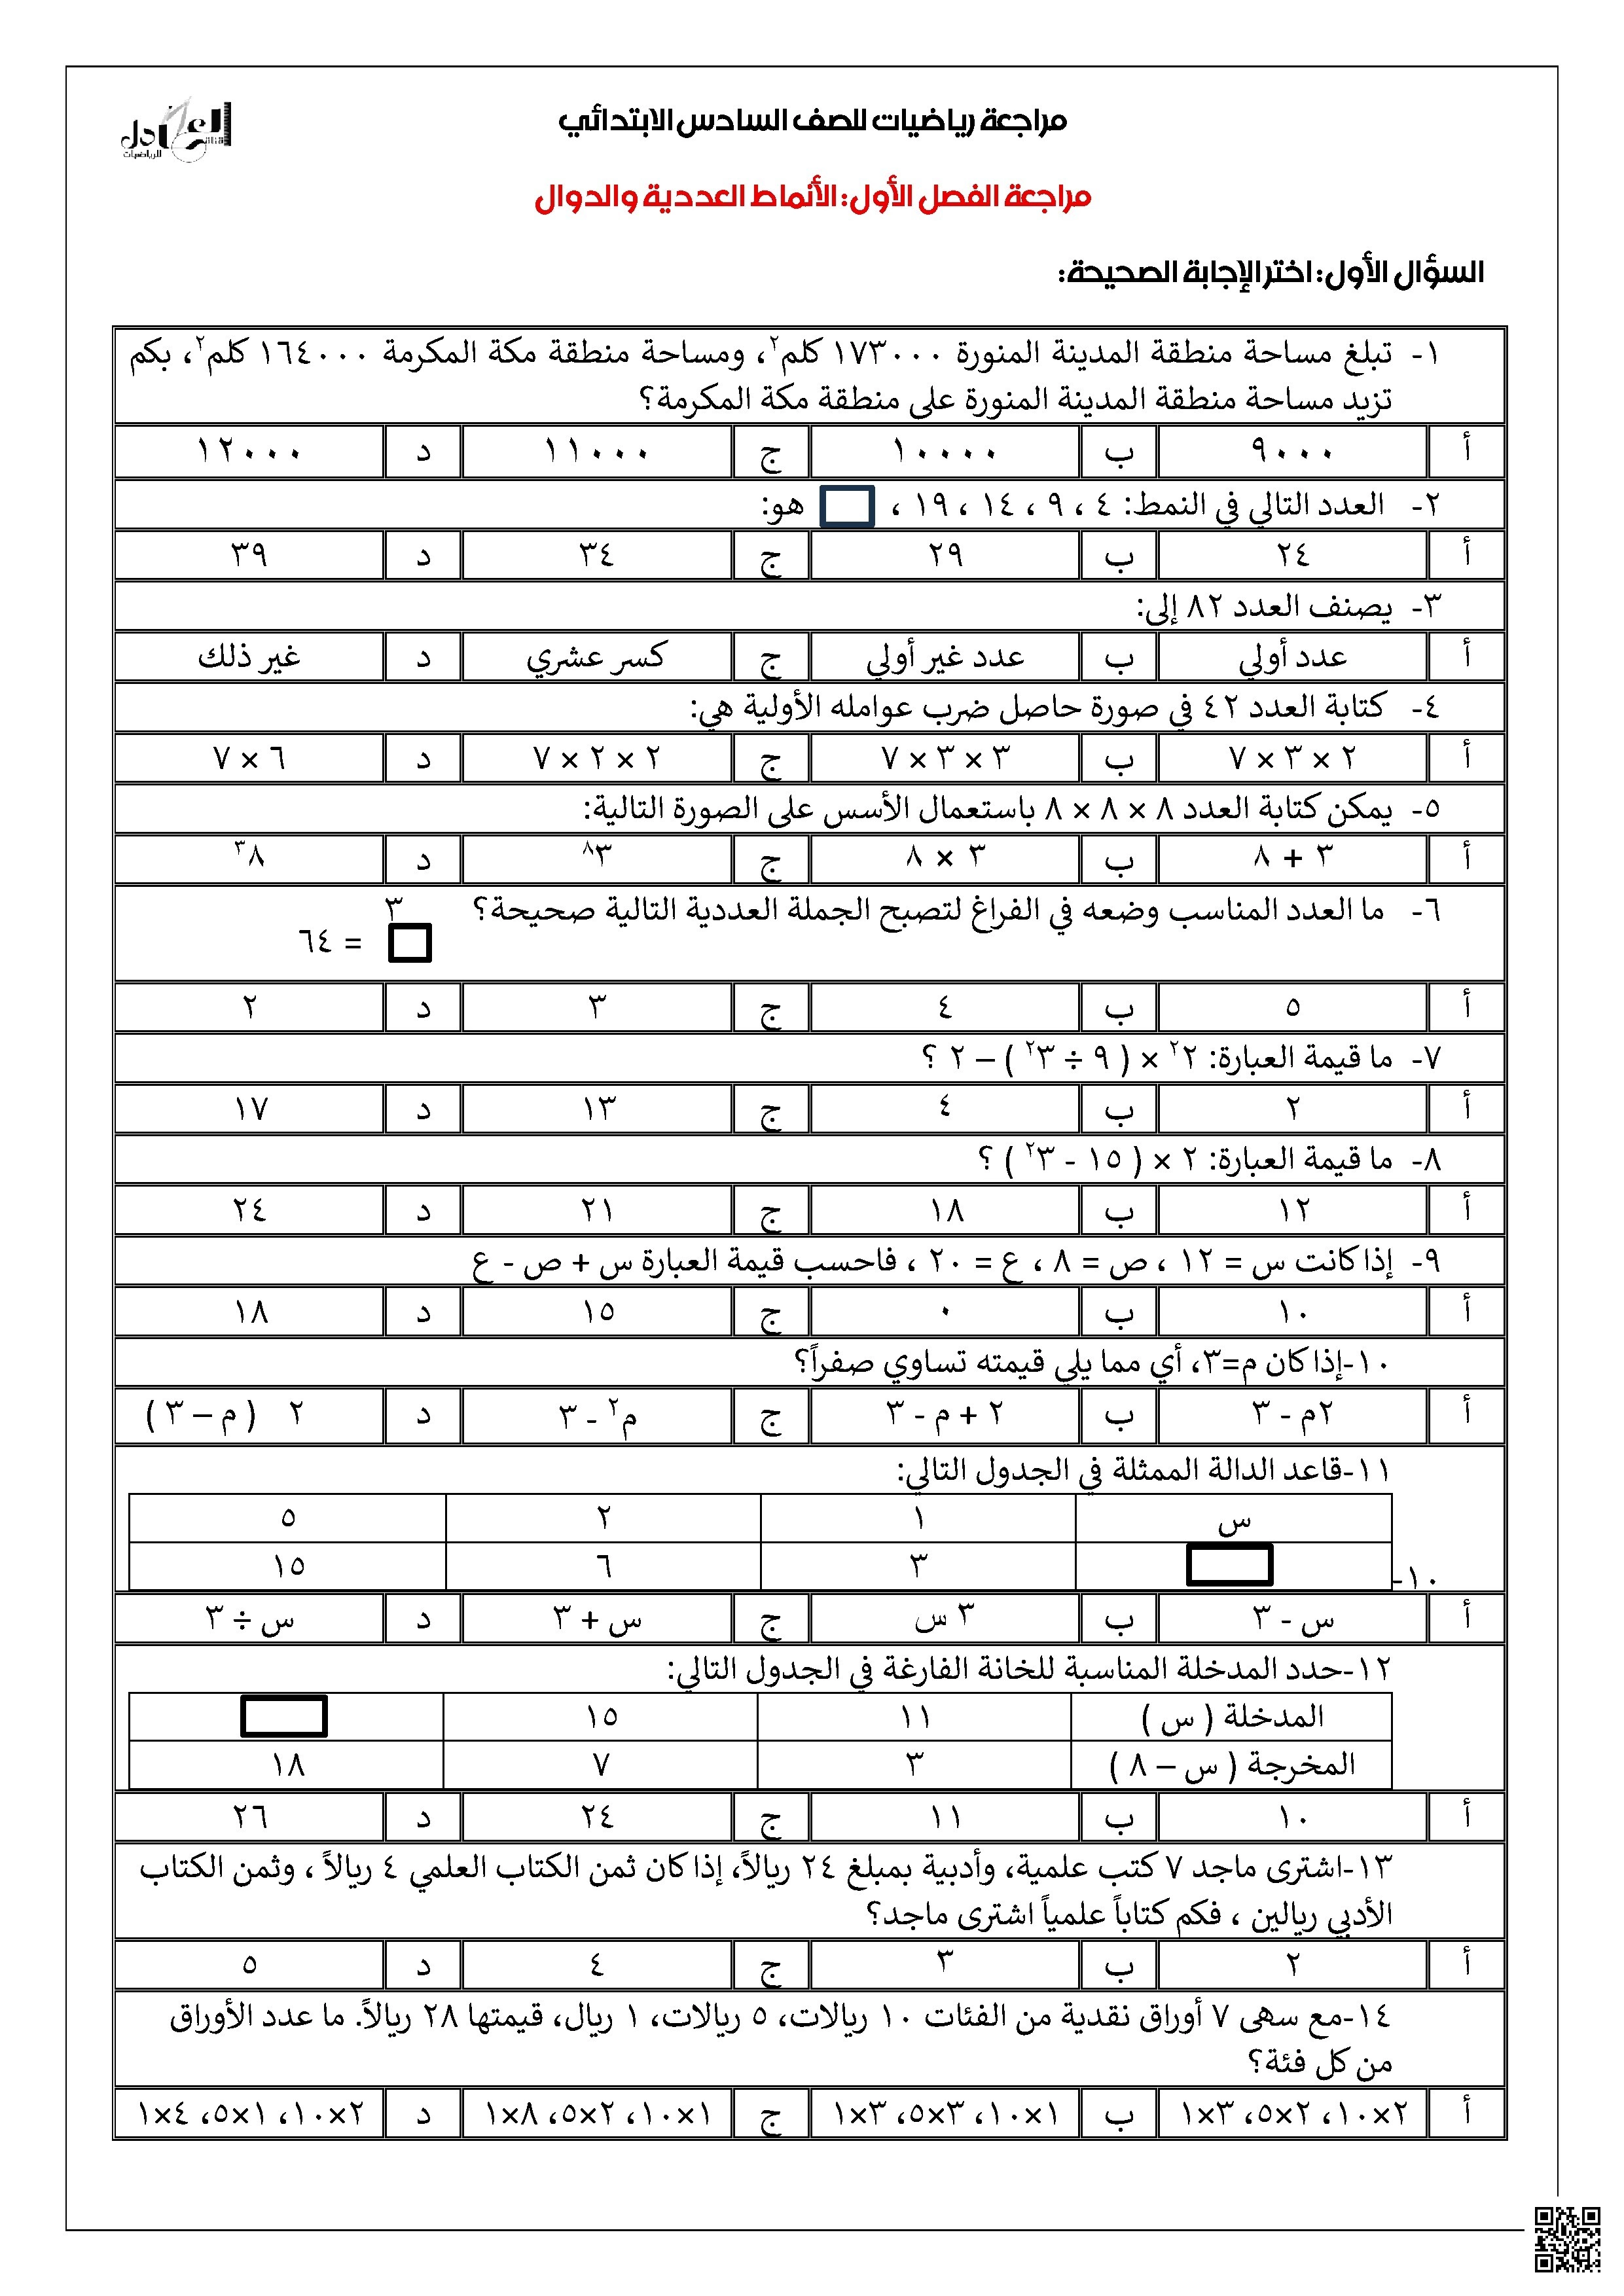 العادل
قناة
للرياضيات
مراجعة رياضيات للصف السادس الابتدائي
مراجعة الفصل الأول: الأنماط العددية والدوال
السؤال الأول: اختر الإجابة الصحيحة:
١- تبلغ مساحة منطقة المدينة المنورة ١٧٣٠٠٠ كلم٢، ومساحة منطقة مكة المكرمة ١٦٤٠٠٠ كلم٢، بكم
تزيد مساحة منطقة المدينة المنورة على منطقة مكة المكرمة؟
أ ٩٠٠٠ ب ١٠٠٠٠ ج ١١٠٠٠ د ١٢٠٠٠
٢- العدد التالي في النمط: ٤ ، ٩ ، ١٤ ، ١٩ ، هو:
أ ٢٤ ب ٢٩ ج ٣٤ د ٣٩
٣- يصنف العدد ٨٢ إلى:
أ عدد أولي ب عدد غير أولي ج كسر عشري د غير ذلك
٤- كتابة العدد ٤٢ في صورة حاصل ضرب عوامله الأولية هي:
أ ٢ × ٣ × ٧ ب ٣ × ٣ × ٧ ج ٢ × ٢ × ٧ د ٦ × ٧
٥- يمكن كتابة العدد ٨ × ٨ × ٨ باستعمال الأسس على الصورة التالية:
أ ٣ + ٨ ب ٣ × ٨ ج ٣^٨ د ٨^٣
٦- ما العدد المناسب وضعه في الفراغ لتصبح الجملة العددية التالية صحيحة؟ ٣
= ٦٤
أ ٥ ب ٤ ج ٣ د ٢
٧- ما قيمة العبارة: ٢^٢ × ( ٩ ÷ ٣^٢ ) – ٢ ؟
أ ٢ ب ٤ ج ١٣ د ١٧
٨- ما قيمة العبارة: ٢ × ( ١٥ - ٣^٢ ) ؟
أ ١٢ ب ١٨ ج ٢١ د ٢٤
٩- إذا كانت س = ١٢ ، ص = ٨ ، ع = ٢٠ ، فاحسب قيمة العبارة س + ص - ع
أ ١٠ ب ٠ ج ١٥ د ١٨
١٠-إذا كان م=٣، أي مما يلي قيمته تساوي صفراً؟
أ ٢م - ٣ ب ٢ + م - ٣ ج م^٢ - ٣ د ٢ ( م – ٣ )
١١-قاعد الدالة الممثلة في الجدول التالي:
س ١ ٢ ٥
١٠- ٣ ٦ ١٥
أ س - ٣ ب ٣ س ج س + ٣ د س ÷ ٣
١٢-حدد المدخلة المناسبة للخانة الفارغة في الجدول التالي:
المدخلة ( س ) ١١ ١٥
المخرجة ( س – ٨ ) ٣ ٧ ١٨
أ ١٠ ب ١١ ج ٢٤ د ٢٦
١٣-اشترى ماجد ٧ كتب علمية، وأدبية بمبلغ ٢٤ ريالاً، إذا كان ثمن الكتاب العلمي ٤ ريالاً ، وثمن الكتاب
الأدبي ريالين ، فكم كتاباً علمياً اشترى ماجد؟
أ ٢ ب ٣ ج ٤ د ٥
١٤-مع سهى ٧ أوراق نقدية من الفئات ١٠ ريالات، ٥ ريالات، ١ ريال، قيمتها ٢٨ ريالاً. ما عدد الأوراق
من كل فئة؟
أ ٢×١٠، ٢×٥، ٣×١ ب ١×١٠، ٣×٥، ٣×١ ج ١×١٠، ٢×٥، ٨×١ د ٢×١٠، ١×٥، ٤×١